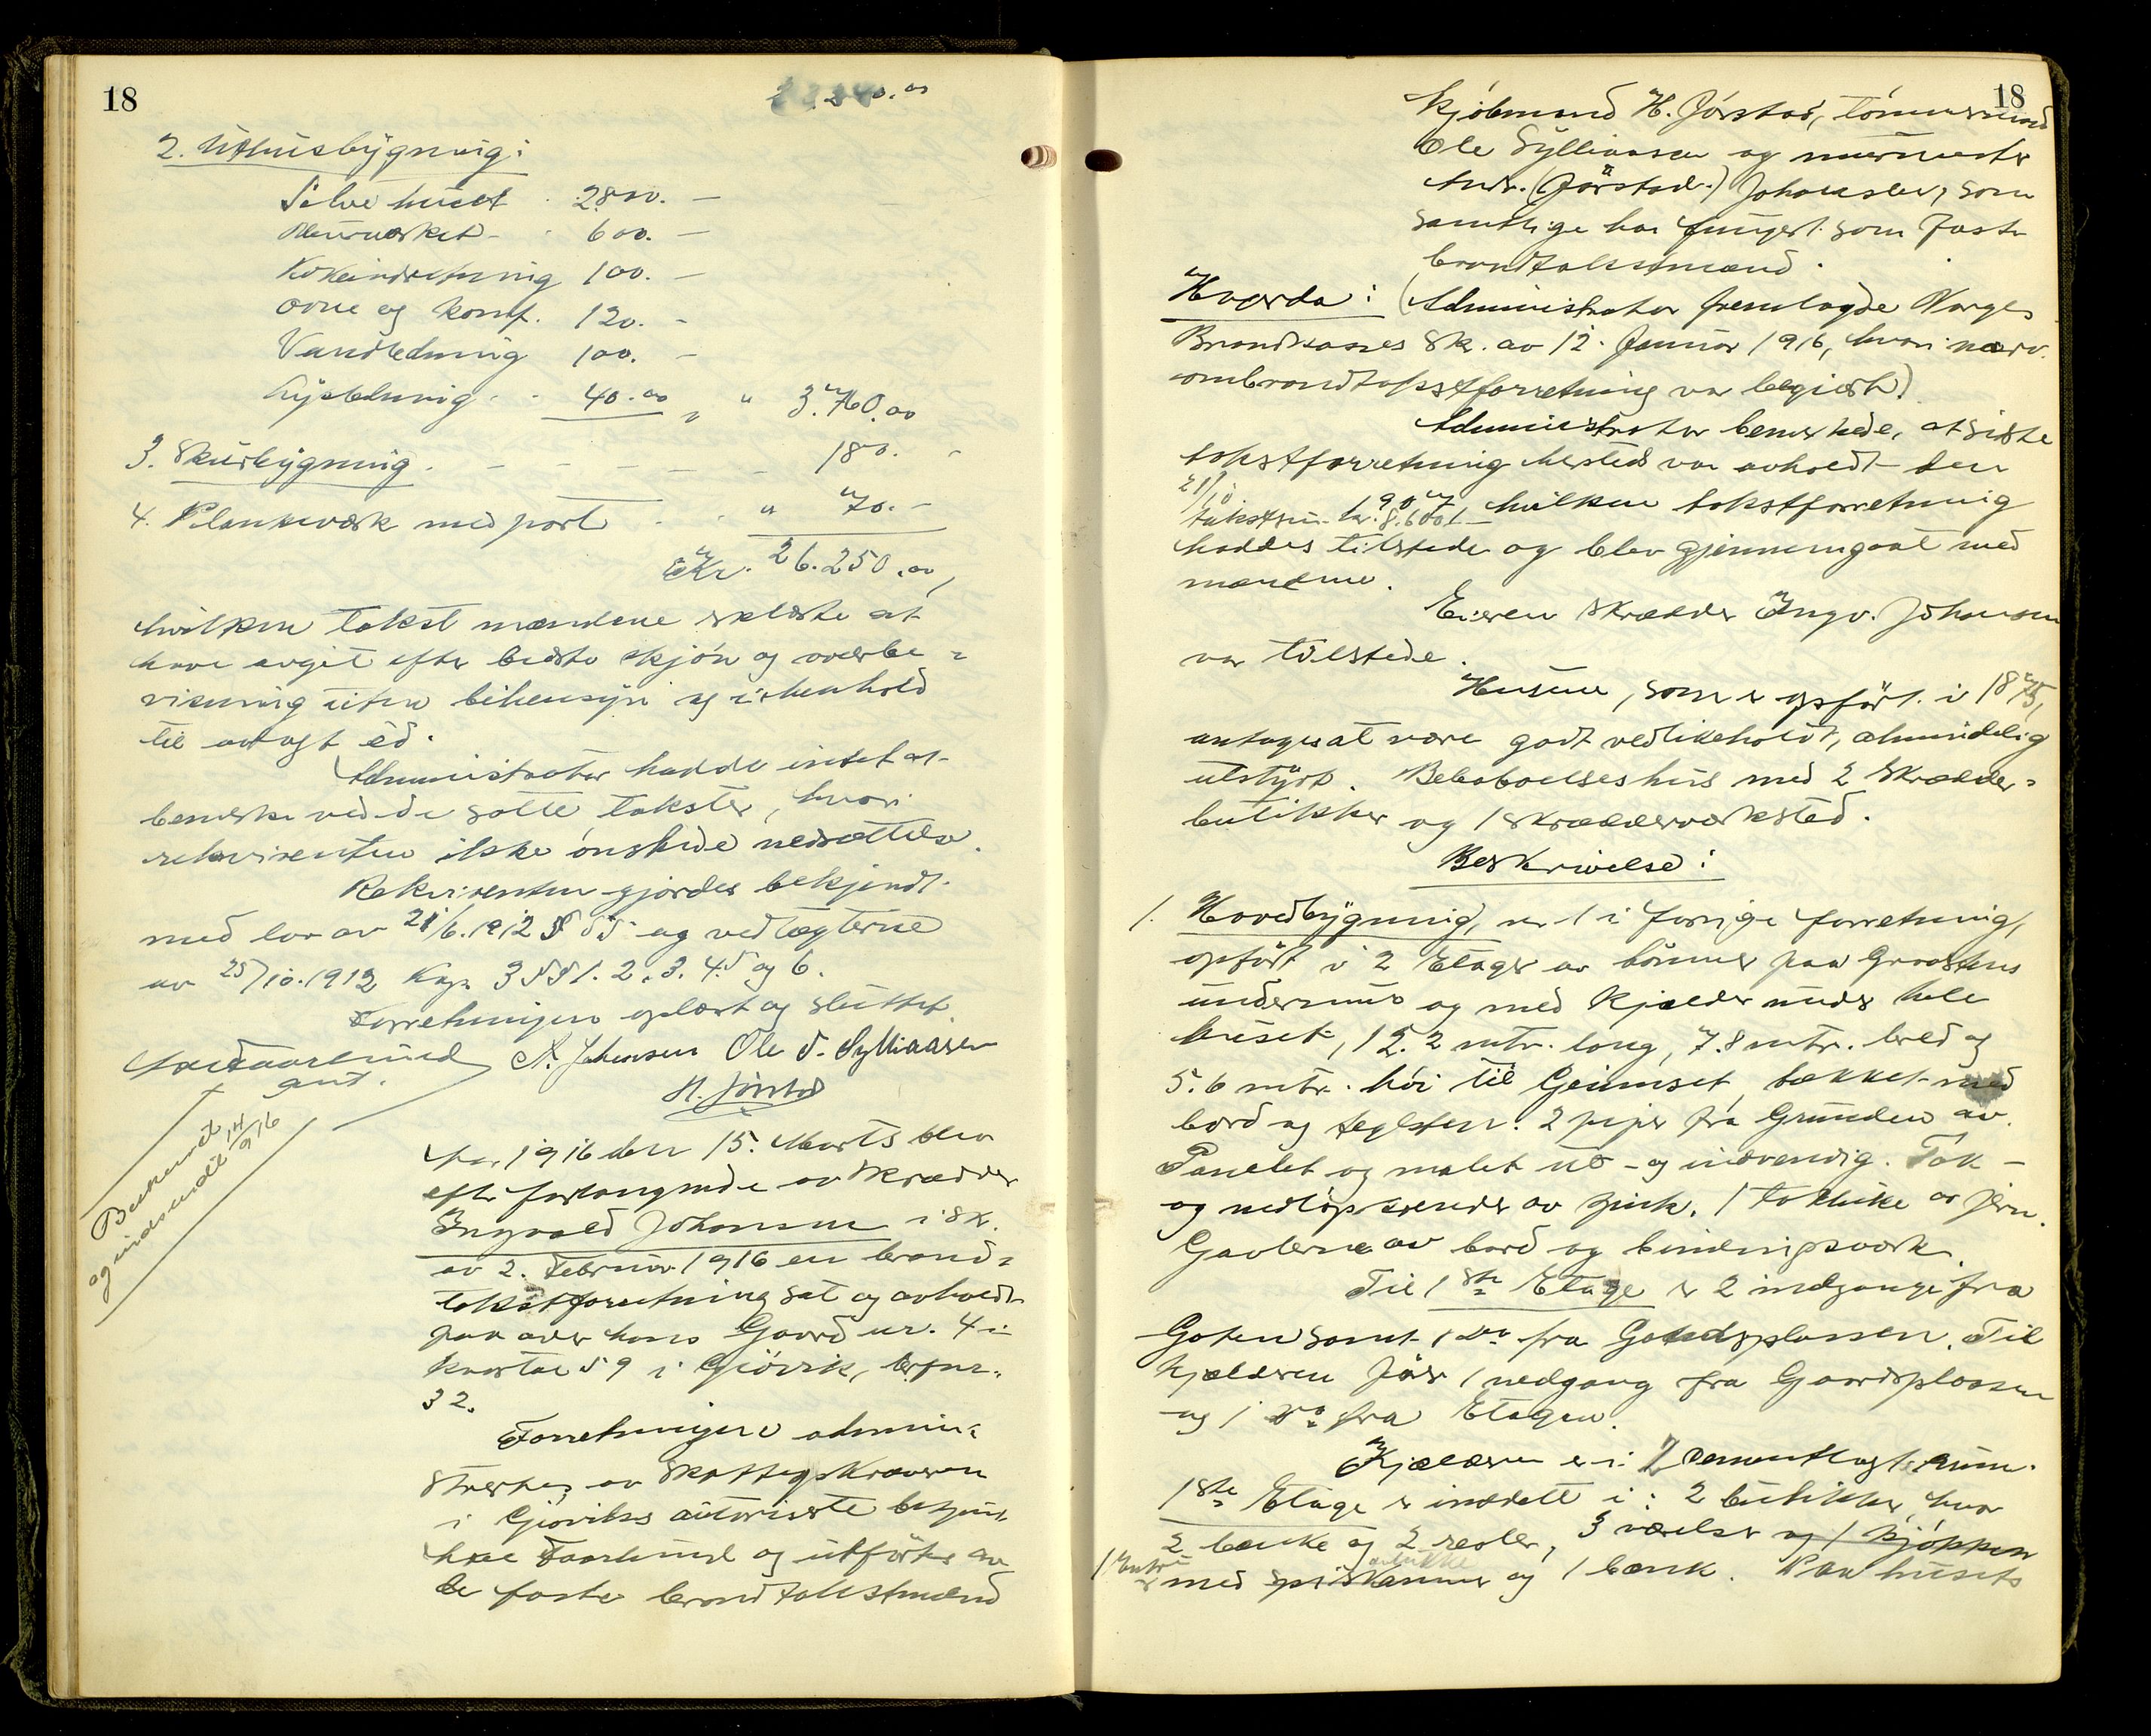 18
2. Uthusbygning:
Selve huset . 2800. —
Murverket - . 600. —
Kokeindretning 100. —
Ovne og komf. 120. -
Vandledning 100. -
Lysledning . . 40.00 „ " 3.760.00
3. Skurbygning . - - - - - - 180. -
4. Plankeværk med port . . " 70. -
Kr. 26.250.00,
hvilken takst mændene erklærte at
have avgit efter bedste skjøn og overbe=
visning uten bihensyn og i henhold
til avlagt ed.
Administrator hadde intet at
bemerke ved de satte takster, hvori
rekvirenten ikke ønskede nedsættelse.
Rekvirenten gjordes bekjendt
med lov av 21/6.1912 § 55 og vedtægterne
av 25/10.1912 Kap 3 §§ 1. 2. 3. 4. 5 og 6.
Forretningen oplæst og sluttet.
Taarlund A. Johansen Ole S. Sylliaasen
aut. H. Jørstad
Beskrevet
og indsendt 14/9 16
Aar 1916 den 15. Marts blev
efter forlangende av Skrædder
Ingvald Johansen i Sk.
av 2. Februar 1916 en brand=
takstforretning sat og avholdt
paa over hans Gaard nr. 4 i
kvartal 59 i Gjøvik, brfnr.
32.
Forretningen admini=
streres av Skatteopkræveren
i Gjøviks autoriserte
Taarlund og utføres av
de faste brandtakstmænd
18
Kjøbmand H. Jørstad, tømmermand
Ole Sylliaasen og murmester
Andr. (Jørstad.) Johansen, som
samtlige har fungert som faste
brandtakstmænd.
Hvorda: (Administrator fremlagde Norges
Brandkasses Sk. av 12. Januar 1916, hvori nærv.
ombrandtakstforretning var begjært.)
Administrator bemerkede, at sidste
takstforretning hersteds var avholdt den
21/10 1907 hvilken takstforretning
takstsum kr. 8.600/-
haddes tilstede og blev gjennemgaat med
mændene.
Eieren Skrædder Ingv. Johansen
var tilstede.
Husene, som er opført i 1875,
antages at være godt vedlikeholdt, almindelig
utstyrt. Beboelseshus med 2 Skrædder=
butikker og 1 skrædderverksted.
Beskrivelse:
1. Hovedbygning, nr 1 i forrige forretning,
opført i 2 Etager av tømmer paa Graastens
undermur og med Kjælder under hele
huset, 12.2 mtr. lang, 7.8 mtr. bred og
5.6 mtr. høi til Gesimset, tækket med
bord og teglsten. 2 piper fra Grunden av.
Panelet og malet ut- og indvendig. Tak-
og nedløpsrender av zink. 1 takluke av jern.
Gavlerne av bord og bindingsverk.
Til 1ste Etage er 2 indgange fra
Gaten samt 1 do fra Gaardsplassen. Til
kjælderen fører 1 nedgang fra Gaardsplassen
og 1 do fra Etagen.
Kjælderen er i: 2 cementlagte rum.
1ste Etage er inddelt i: 2 butikker, hvor
2 bænke og 2 reoler, 3 værelser og 1 kjøkken
1 Entre med spiskammer og 1 bænk. Paa husets